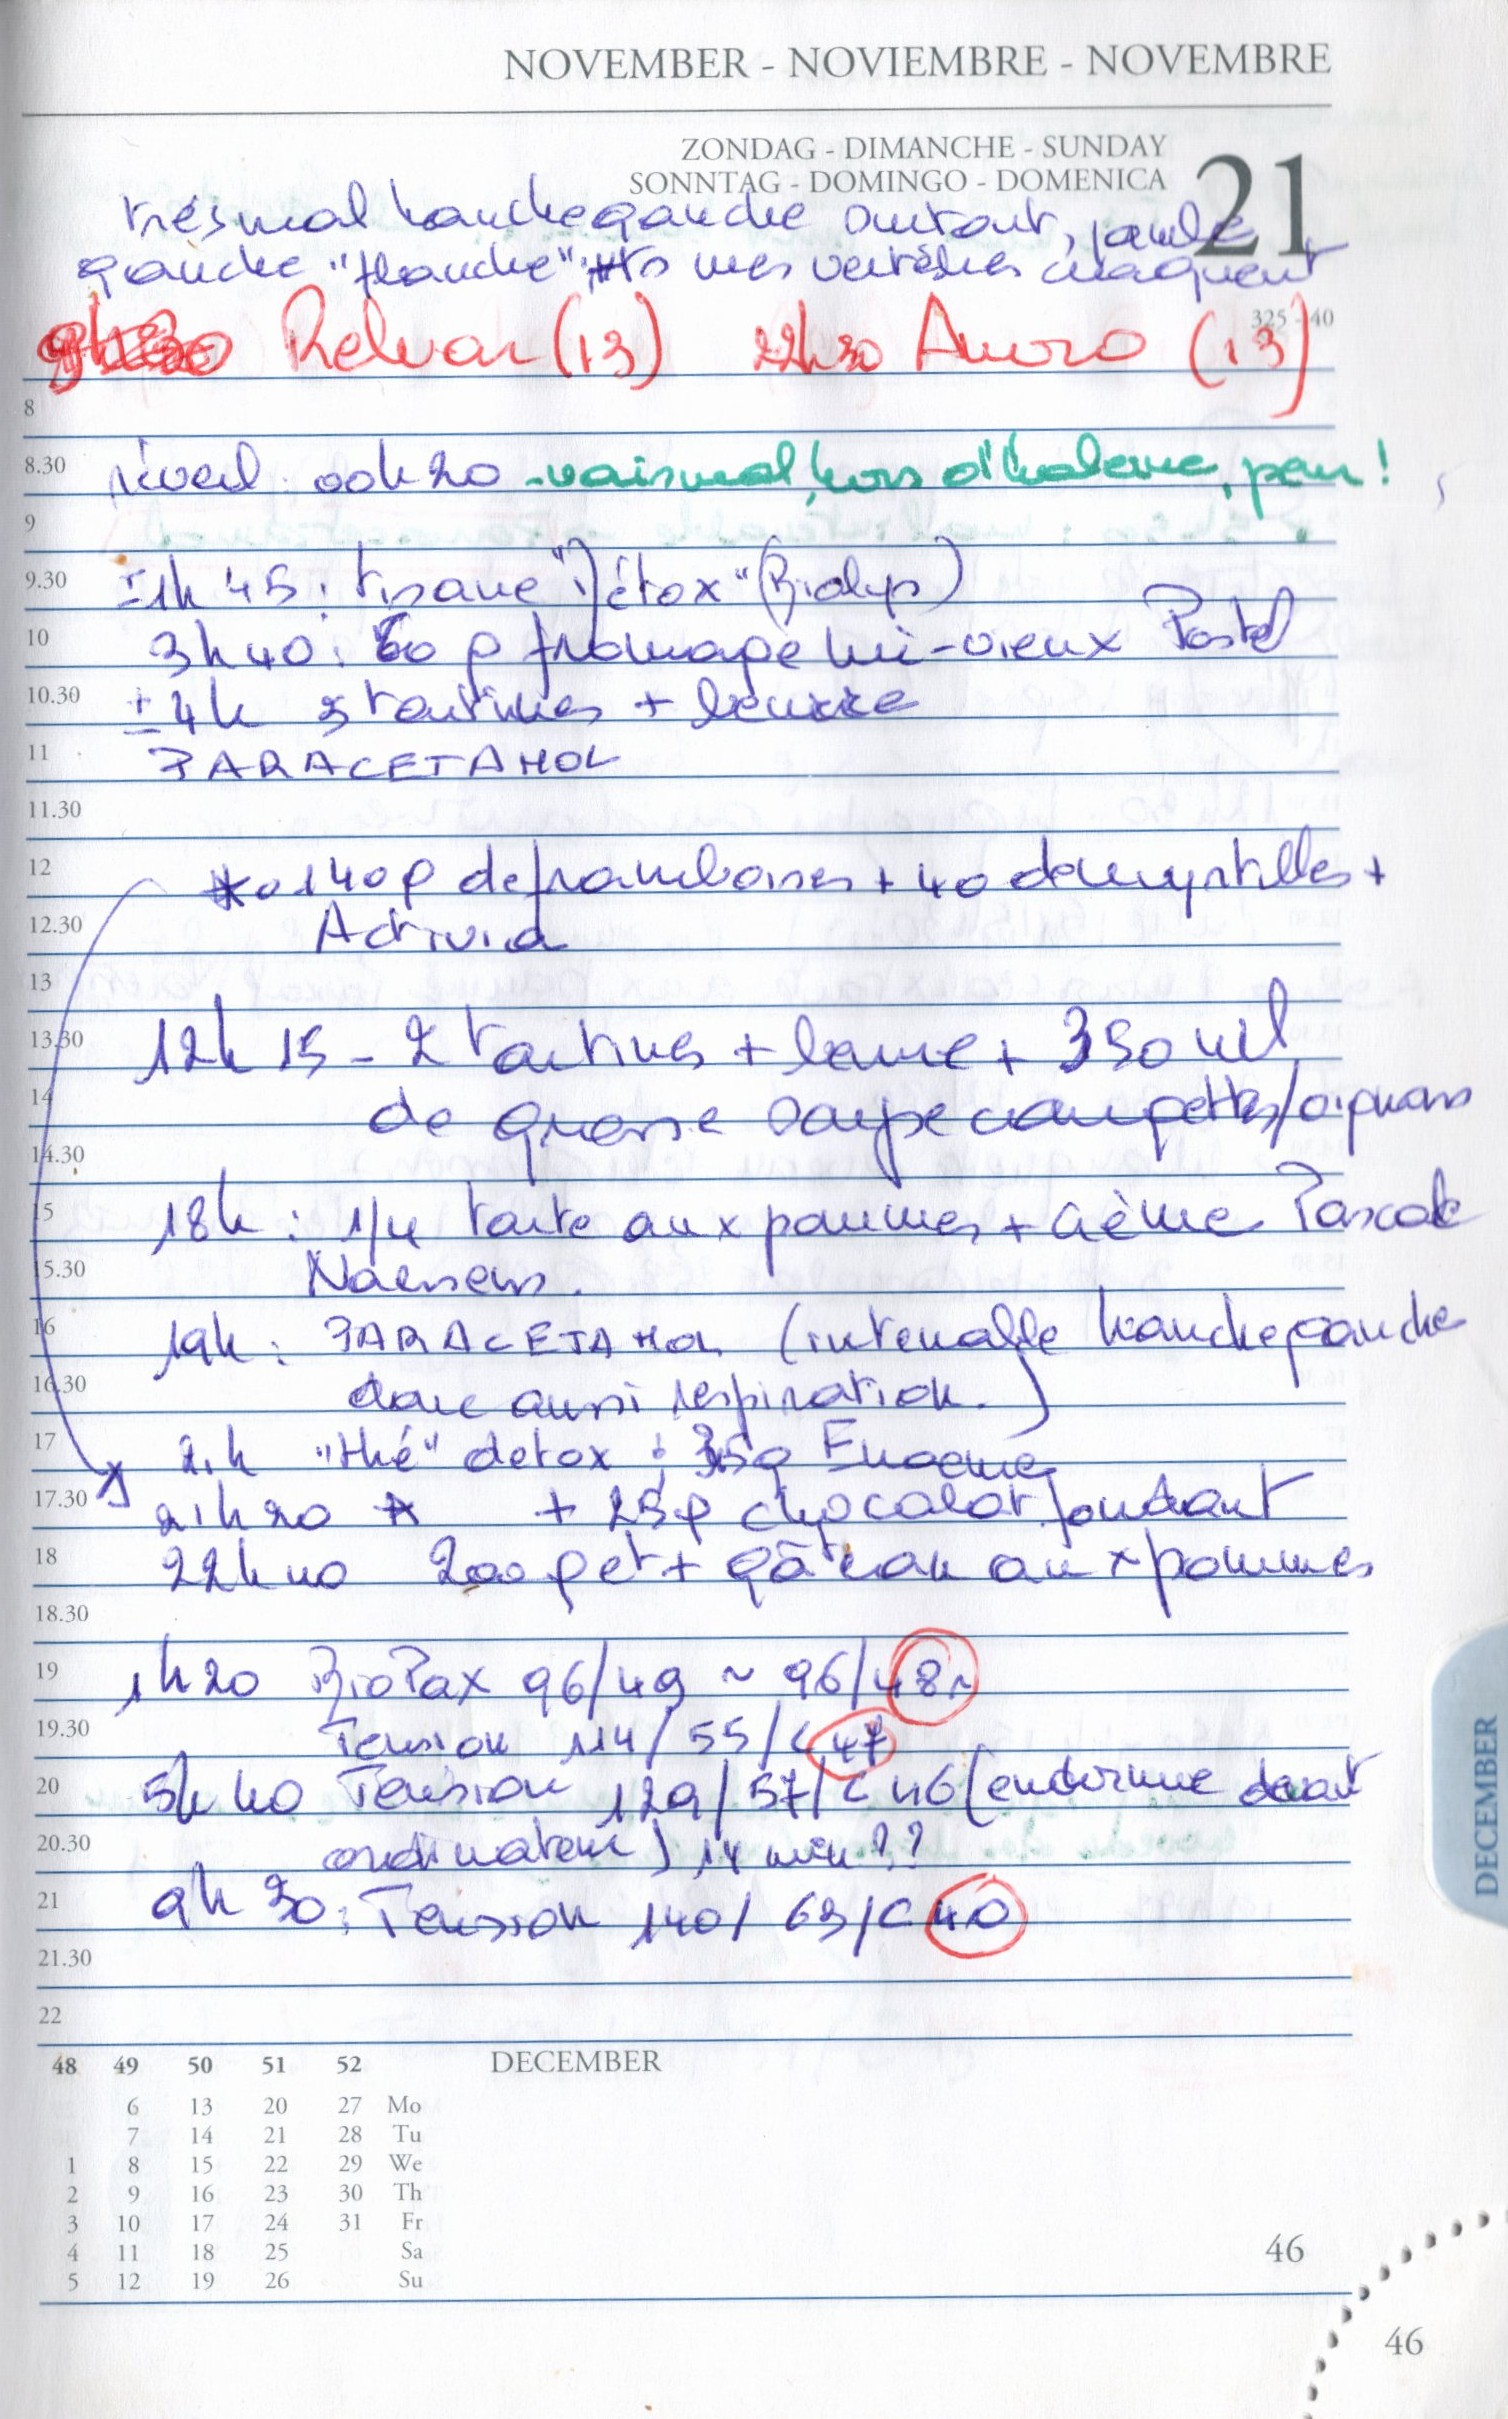 NOVEMBER - NOVIEMBRE - NOVEMBRE
ZONDAG - DIMANCHE - SUNDAY
SONNTAG - DOMINGO - DOMENICA
21
très mal hanche gauche surtout, jambe
gauche "flanche", mes vertèbres craquent
325 - 40
9h30 Relvar (13) 22h30 Anoro (13)
8
8.30 réveil : 00h20 - vais mal, hors d'haleine, peur!
9
9.30 ± 1h45 : tisane "Détox" (Bialys)
10 3h40 : 60 g fromage mi-vieux Pastel
10.30 ± 4h 3 tartines + beurre
11 PARACETAMOL
11.30
12 140g de framboises + 40 de myrtilles +
12.30 Activia
13
13.30 12h15 - 2 tartines + beurre + 350 ml
14 de grosse soupe courgettes/oignons
14.30
15 18h : 1/4 tarte aux pommes + crème Pascale
15.30 Naessens.
16 19h : PARACETAMOL (intenable hanche gauche
16.30 donc aussi respiration.)
17 21h "thé" detox ; 35g
17.30 21h20 * + 25g chocolat fondant
18 22h40 200g et + gâteau aux pommes
18.30
19 1h20 BioPax 96/49 ~ 96/48~
19.30 Tension 114/55/C47
20 5h40 Tension 129/57/C46 (endormie devant
20.30 ordinateur) 14 min??
21 9h30 : Tension 140/63/C40
21.30
22
48 49 50 51 52 DECEMBER
6 13 20 27 Mo
7 14 21 28 Tu
1 8 15 22 29 We
2 9 16 23 30 Th
3 10 17 24 31 Fr
4 11 18 25 Sa
5 12 19 26 Su
46
46
DECEMBER